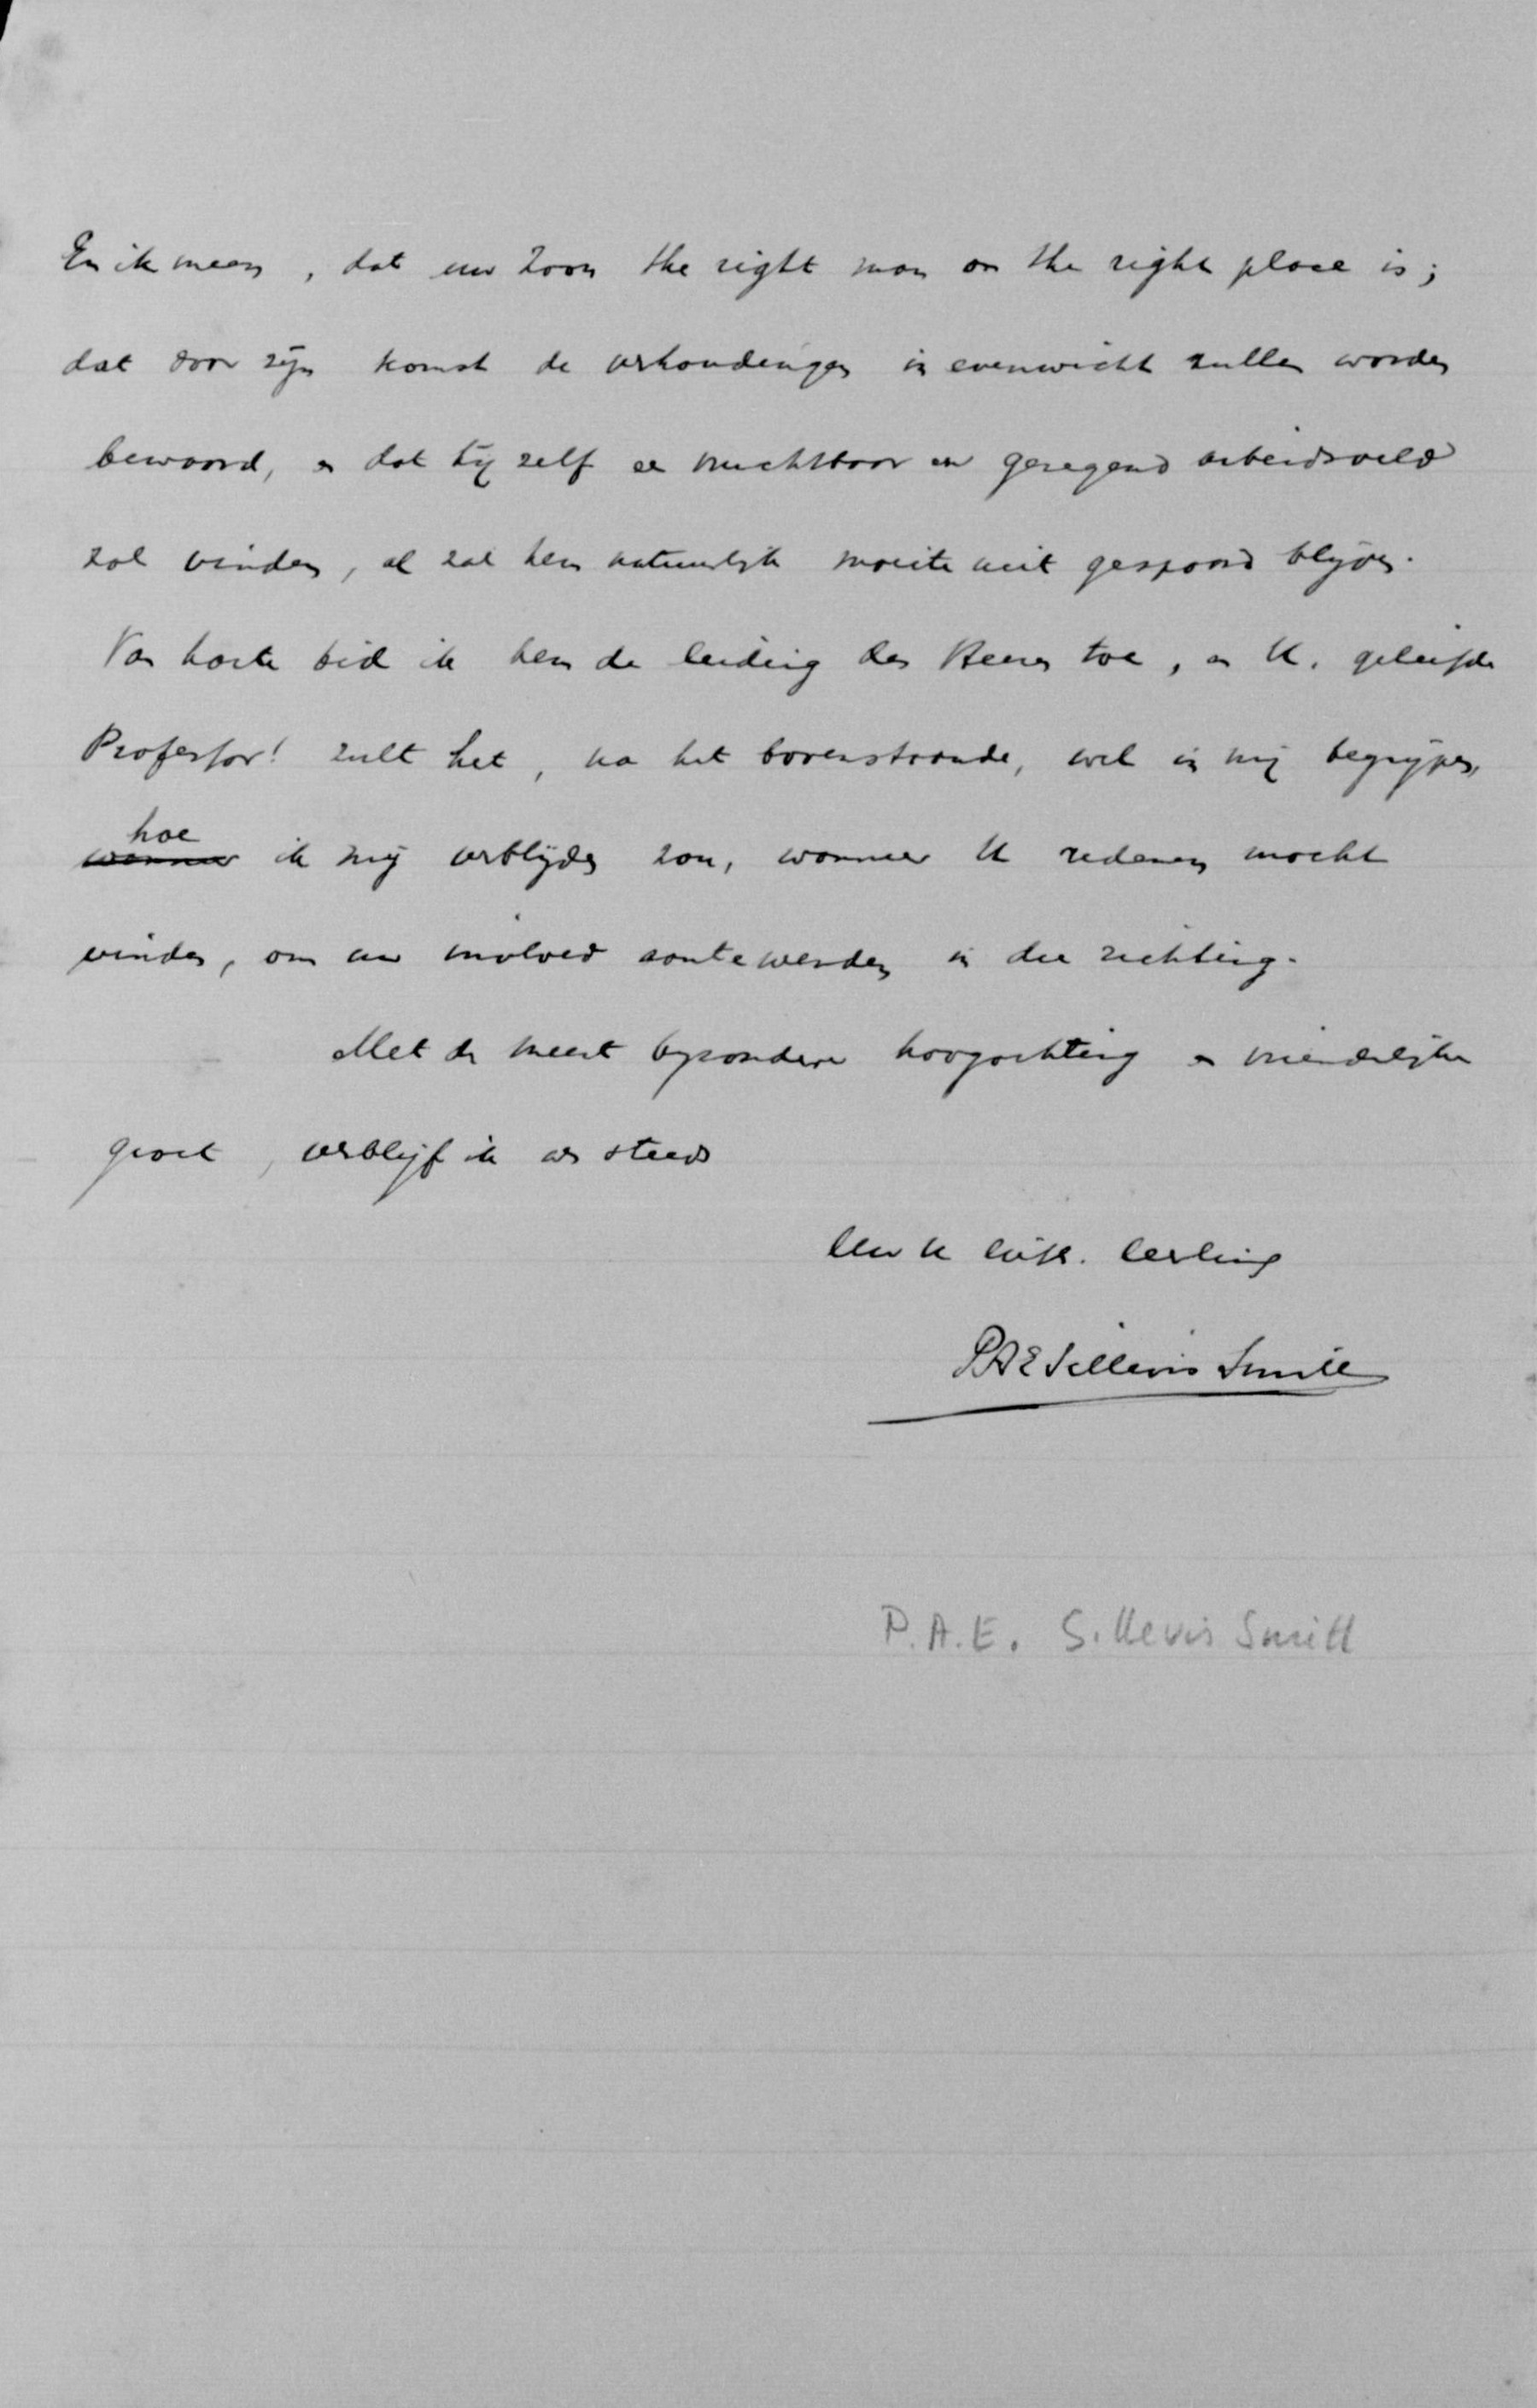 En ik meen, dat uw zoon the right man on the right place is;
dat door zijn komst de verhoudingen in evenwicht zullen worden
bewaard, en dat hij zelf een vruchtbaar en gezegend arbeidsveld
zal vinden, al zal hem natuurlijk moeite niet gespaard blijven.
Van harte bid ik hem de leiding des Heeren toe, en U, geliefde
Professor! zult het, na het bovenstaande, wel in mij begrijpen,
hoe
wanneer ik mij verblijden zou, wanneer U redenen mocht
vinden, om uw invloed aantewenden in die richting.
Met de meest byzondere hoogachting en vriendelijke
groet, verblijf ik als steeds
Uw U liefh. leerling
PAE Sillevis Smitt
P.A.E. Sillevis Smitt